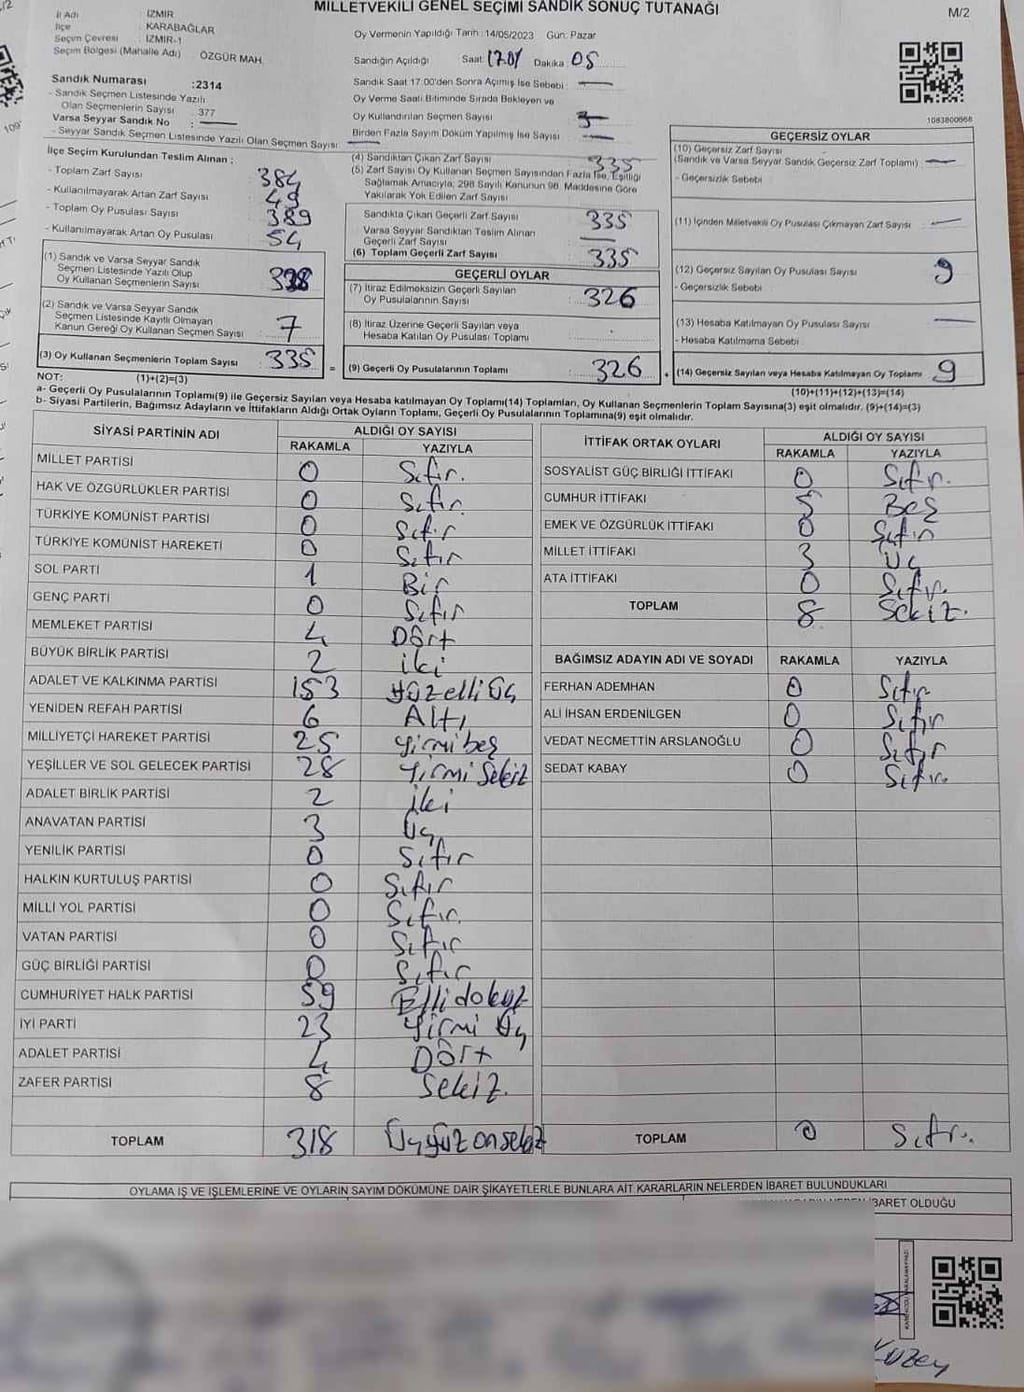 MİLLETVEKİLİ GENEL SEÇİMİ SANDIK SONUÇ TUTANAĞI
M/2
İl Adı : İZMİR
İlçe : KARABAĞLAR
Seçim Çevresi : İZMİR-1
Seçim Bölgesi (Mahalle Adı) ÖZGÜR MAH.
Oy Vermenin Yapıldığı Tarih :14/05/2023 Gün: Pazar
Sandığın Açıldığı Saat: 17.01 Dakika: 05
Sandık Numarası :2314
- Sandık Seçmen Listesinde Yazılı
Olan Seçmenlerin Sayısı : 377
Varsa Seyyar Sandık No :
- Seyyar Sandık Seçmen Listesinde Yazılı Olan Seçmen Sayısı:
Sandık Saat 17.00'den Sonra Açımış İse Sebebi :
Oy Verme Saati Bitiminde Sırada Bekleyen ve
Oy Kullandırılan Seçmen Sayısı
Birden Fazla Sayım Döküm Yapılmış İse Sayısı
1083800668
İlçe Seçim Kurulundan Teslim Alınan :
- Toplam Zarf Sayısı 384
- Kullanılmayarak Artan Zarf Sayısı 49
- Toplam Oy Pusulası Sayısı 389
- Kullanılmayarak Artan Oy Pusulası 54
(1) Sandık ve Varsa Seyyar Sandık
Seçmen Listesinde Yazılı Olup
Oy Kullanan Seçmenlerin Sayısı 328
(2) Sandık ve Varsa Seyyar Sandık
Seçmen Listesinde Kayıtlı Olmayan
Kanun Gereği Oy Kullanan Seçmen Sayısı 7
(3) Oy Kullanan Seçmenlerin Toplam Sayısı 335
(1)+(2)=(3)
(4) Sandıktan Çıkan Zarf Sayısı 335
(5) Zarf Sayısı Oy Kullanan Seçmen Sayısından Fazla İse, Eşitliği
Sağlamak Amacıyla, 298 Sayılı Kanunun 98. Maddesine Göre
Yakılarak Yok Edilen Zarf Sayısı
Sandıkta Çıkan Geçerli Zarf Sayısı 335
Varsa Seyyar Sandıktan Teslim Alınan
Geçerli Zarf Sayısı
(6) Toplam Geçerli Zarf Sayısı 335
GEÇERLİ OYLAR
(7) İtiraz Edilmeksizin Geçerli Sayılan
Oy Pusulalarının Sayısı 326
(8) İtiraz Üzerine Geçerli Sayılan veya
Hesaba Katılan Oy Pusulası Toplamı
= (9) Geçerli Oy Pusulalarının Toplamı 326
GEÇERSİZ OYLAR
(10) Geçersiz Zarf Sayısı
(Sandık ve Varsa Seyyar Sandık Geçersiz Zarf Toplamı)
- Geçersizlik Sebebi
(11) İçinden Milletvekili Oy Pusulası Çıkmayan Zarf Sayısı
(12) Geçersiz Sayılan Oy Pusulası Sayısı 9
- Geçersizlik Sebebi
(13) Hesaba Katılmayan Oy Pusulası Sayısı
- Hesaba Katılmama Sebebi
+ (14) Geçersiz Sayılan veya Hesaba Katılmayan Oy Toplamı 9
(10)+(11)+(12)+(13)=(14)
NOT:
a- Geçerli Oy Pusulalarının Toplamı(9) ile Geçersiz Sayılan veya Hesaba katılmayan Oy Toplamı(14) Toplamları, Oy Kullanan Seçmenlerin Toplam Sayısına(3) eşit olmalıdır. (9)+(14)=(3)
b- Siyasi Partilerin, Bağımsız Adayların ve İttifakların Aldığı Ortak Oyların Toplamı, Geçerli Oy Pusulalarının Toplamına(9) eşit olmalıdır.
SİYASİ PARTİNİN ADI ALDIĞI OY SAYISI
RAKAMLA YAZIYLA
MİLLET PARTİSİ 0 Sıfır.
HAK VE ÖZGÜRLÜKLER PARTİSİ 0 Sıfır.
TÜRKİYE KOMÜNİST PARTİSİ 0 Sıfır
TÜRKİYE KOMÜNİST HAREKETİ 0 Sıfır
SOL PARTİ 1 Bir
GENÇ PARTİ 0 Sıfır
MEMLEKET PARTİSİ 4 Dört
BÜYÜK BİRLİK PARTİSİ 2 iki
ADALET VE KALKINMA PARTİSİ 153 Yüzelli Üç
YENİDEN REFAH PARTİSİ 6 Altı
MİLLİYETÇİ HAREKET PARTİSİ 25 Yirmi beş
YEŞİLLER VE SOL GELECEK PARTİSİ 28 Yirmi Sekiz
ADALET BİRLİK PARTİSİ 2 iki
ANAVATAN PARTİSİ 3 Üç
YENİLİK PARTİSİ 0 Sıfır
HALKIN KURTULUŞ PARTİSİ 0 Sıfır
MİLLİ YOL PARTİSİ 0 Sıfır.
VATAN PARTİSİ 0 Sıfır
GÜÇ BİRLİĞİ PARTİSİ 0 Sıfır
CUMHURİYET HALK PARTİSİ 59 Elli dokuz
İYİ PARTİ 23 Yirmi Üç
ADALET PARTİSİ 4 Dört
ZAFER PARTİSİ 8 Sekiz.
TOPLAM 318 Üçyüz onsekiz
İTTİFAK ORTAK OYLARI ALDIĞI OY SAYISI
RAKAMLA YAZIYLA
SOSYALİST GÜÇ BİRLİĞİ İTTİFAKI 0 Sıfır.
CUMHUR İTTİFAKI 5 Beş
EMEK VE ÖZGÜRLÜK İTTİFAKI 0 Sıfır
MİLLET İTTİFAKI 3 Üç
ATA İTTİFAKI 0 Sıfır.
TOPLAM 8 Sekiz.
BAĞIMSIZ ADAYIN ADI VE SOYADI RAKAMLA YAZIYLA
FERHAN ADEMHAN 0 Sıfır
ALİ İHSAN ERDENİLGEN 0 Sıfır
VEDAT NECMETTİN ARSLANOĞLU 0 Sıfır
SEDAT KABAY 0 Sıfır.
TOPLAM 0 Sıfır.
OYLAMA İŞ VE İŞLEMLERİNE VE OYLARIN SAYIM DÖKÜMÜNE DAİR ŞİKAYETLERLE BUNLARA AİT KARARLARIN NELERDEN İBARET BULUNDUKLARI
İBARET OLDUĞU